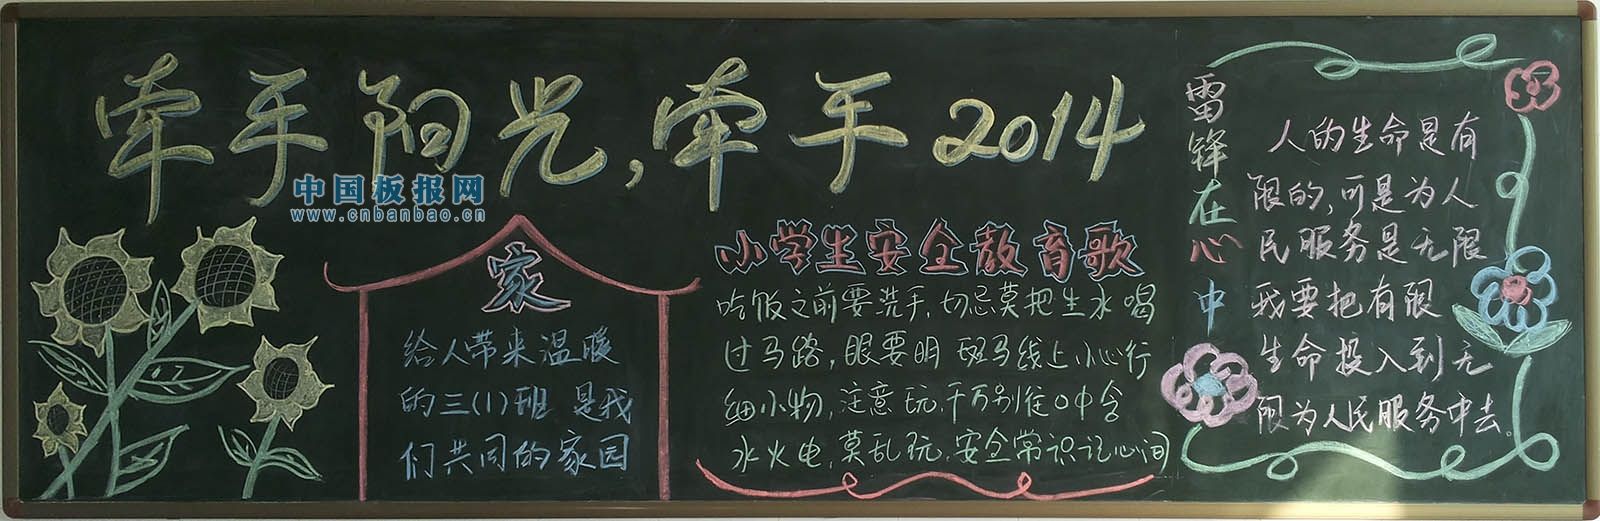 牵手阳光,牵手2014
中国板报网
www.cnbanbao.cn
家
给人带来温暖
的三(1)班 是我
们共同的家园
小学生安全教育歌
吃饭之前要洗手,切忌莫把生水喝
过马路,眼要明 斑马线上小心行
细小物,注意玩,千万别往口中含
水火电,莫乱玩,安全常识记心间
雷锋在心中
人的生命是有
限的,可是为人
民服务是无限
我要把有限
生命投入到无
限为人民服务中去。